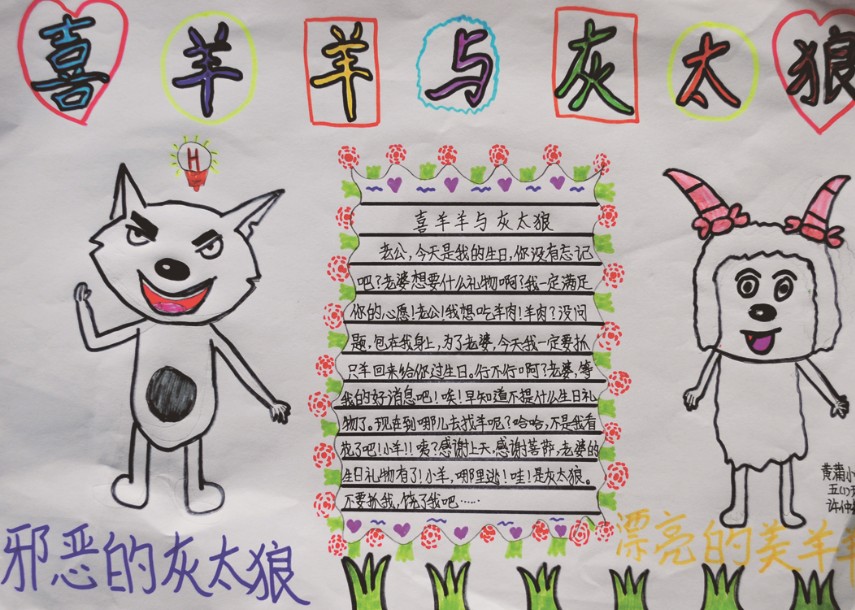 喜羊羊与灰太狼
H
喜羊羊与灰太狼
老公，今天是我的生日，你没有忘记
吧？老婆想要什么礼物啊？我一定满足
你的心愿！老公！我想吃羊肉！羊肉？没问
题，包在我身上，为了老婆，今天我一定要抓
只羊回来给你过生日。行不行啊？老婆，等
我的好消息吧！唉！早知道不提什么生日礼
物了。现在到哪儿去找羊呢？哈哈，不是我看
花了吧！小羊！！咦？感谢上天，感谢菩萨，老婆的
生日礼物有了！小羊，哪里逃！哇！是灰太狼。
不要抓我，饶了我吧……
邪恶的灰太狼
漂亮的美羊羊
黄蒲小
五(1)
许仲